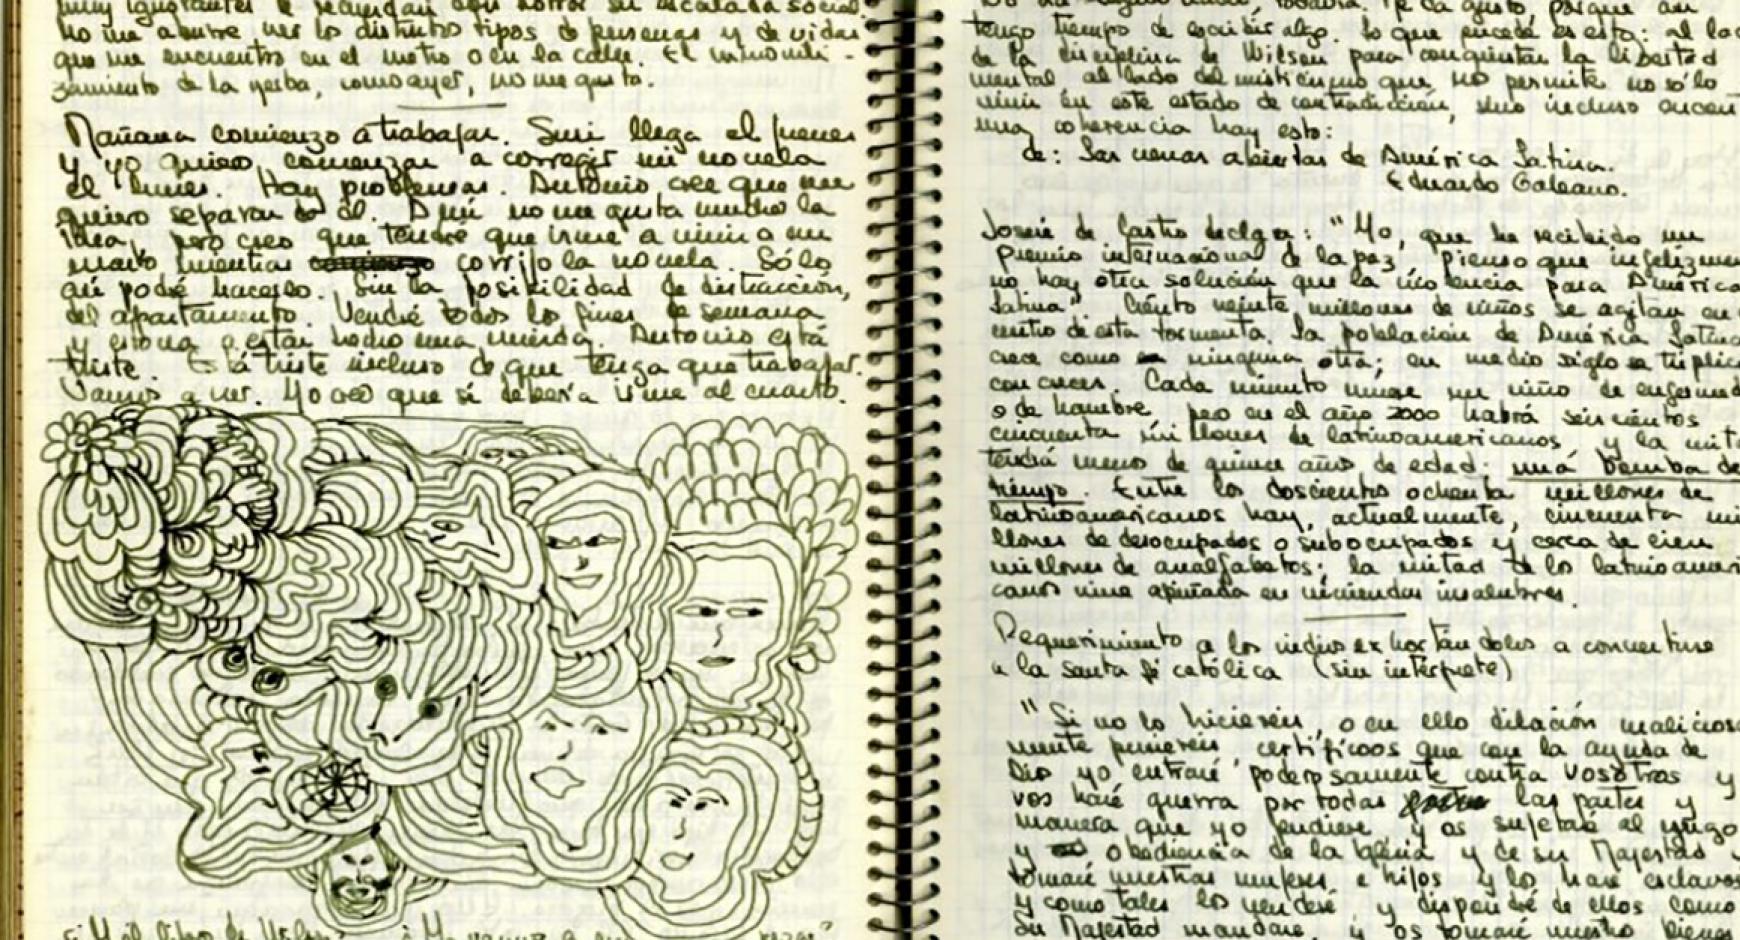 muy ignorantes e recuerdan aquí su escalada social.
No me aburre ver los distintos tipos de personas y de vidas
que me encuentro en el metro o en la calle. El inmovili-
zamiento de la yerba, como ayer, no me gusta.
Mañana comienzo a trabajar. Susi llega el jueves
y yo quiero comenzar a corregir mi novela
el lunes. Hay problemas. Antonio cree que me
quiero separar de él. A mí no me gusta mucho la
idea, pero creo que tendré que irme a vivir a un
cuarto mientras corrijo la novela. Sólo
así podré hacerlo. Sin la posibilidad de distracción,
del apartamento. Vendré todos los fines de semana
y ahora a estar hecho una mierda. Antonio está
triste. Está triste incluso de que tenga que trabajar.
Vamos a ver. Yo creo que sí debería irme al cuarto.
tengo tiempo de escribir algo. Lo que sucede es esto: al lado
de la disciplina de Wilson para conquistar la libertad
mental al lado del misticismo que no permite no sólo
vivir en este estado de contradicción, sino incluso
una coherencia hay esto:
de: Las venas abiertas de América Latina.
Eduardo Galeano.
Josué de Castro declara: "Yo, que he recibido un
premio internacional de la paz, pienso que infelizmen
no hay otra solución que la violencia para América
Latina". Ciento veinte millones de niños se agitan en el
centro de esta tormenta. La población de América Latina
crece como en ninguna otra; en medio siglo se triplicó
con creces. Cada minuto muere un niño de enfermed
o de hambre pero en el año 2000 habrá seiscientos
cincuenta millones de latinoamericanos y la mita
tendrá menos de quince años de edad: una bomba de
tiempo. Entre los doscientos ochenta millones de
latinoamericanos hay, actualmente, cincuenta mi
llones de desocupados o subocupados y cerca de cien
millones de analfabetos; la mitad de los latinoameri
canos vive apiñada en viviendas insalubres.
Requerimiento a los indios exhortándolos a convertirse
a la santa fé católica (sin intérprete)
"Si no lo hiciereis, o en ello dilación maliciosa
mente pusiereis, certificoos que con la ayuda de
Dios yo entraré poderosamente contra vosotros y
vos haré guerra por todas las partes y
manera que yo pudiere y os sujetaré al yugo
y obediencia de la Iglesia y de su Majestad y
tomaré vuestras mujeres e hijos y los haré esclavos
y como tales los venderé y dispondré de ellos como
Su Majestad mandare, y os tomaré vuestros bienes